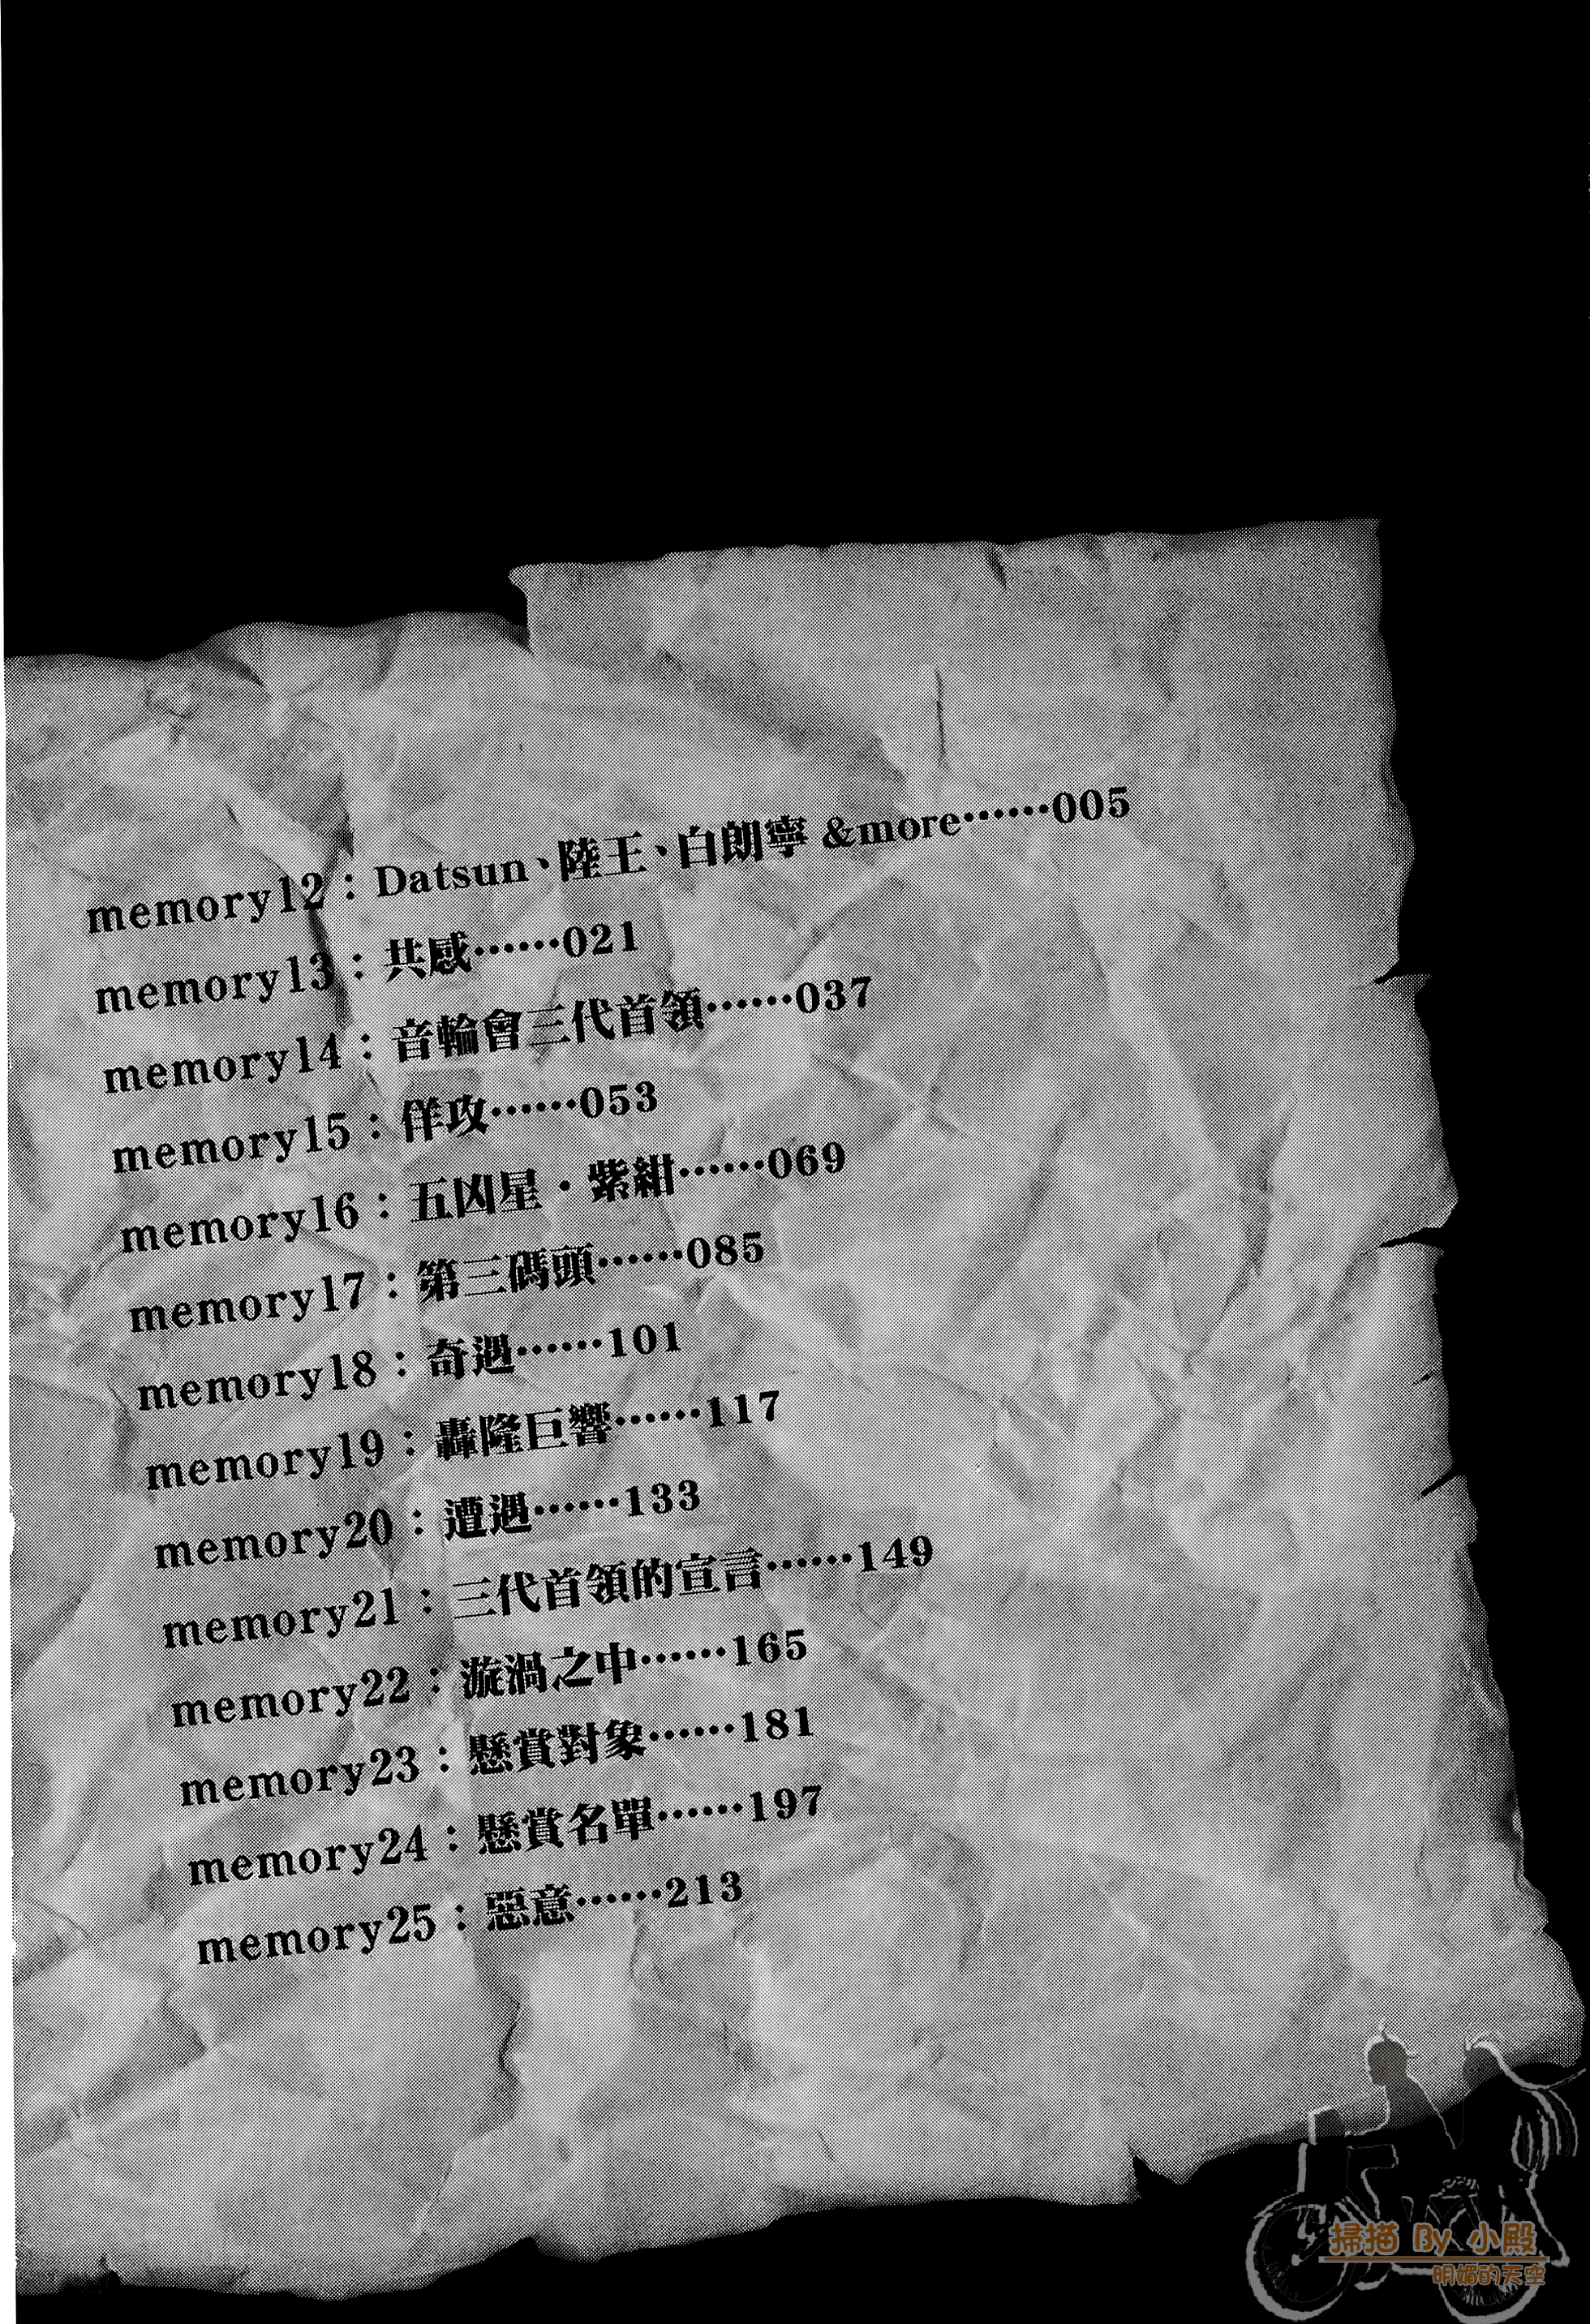 memory12：Datsun、陸王、白朗寧 &more……005
memory13：共感……021
memory14：音輪會三代首領……037
memory15：佯攻……053
memory16：五凶星・紫紺……069
memory17：第三碼頭……085
memory18：奇遇……101
memory19：轟隆巨響……117
memory20：遭遇……133
memory21：三代首領的宣言……149
memory22：漩渦之中……165
memory23：懸賞對象……181
memory24：懸賞名單……197
memory25：惡意……213
掃描 By 小殿
明媚的天空